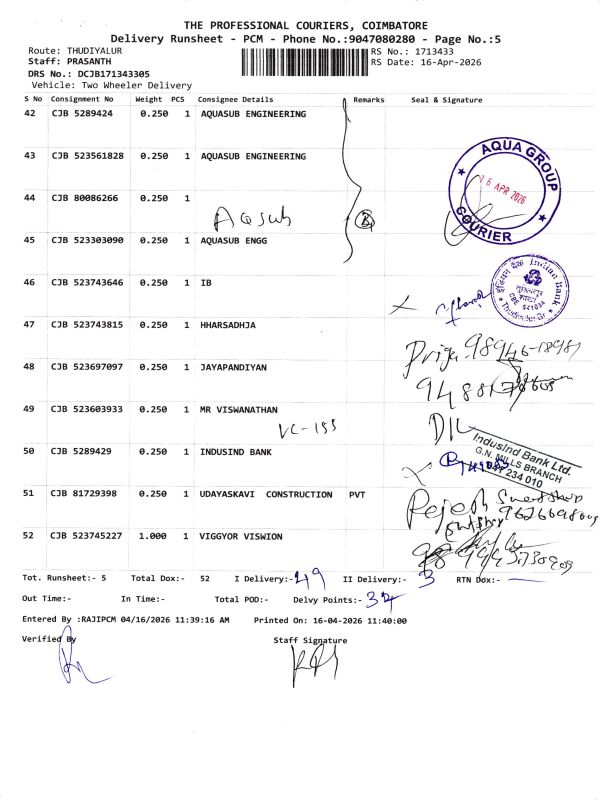 THE PROFESSIONAL COURIERS, COIMBATORE
Delivery Runsheet - PCM - Phone No.:9047080280 - Page No.:5
Route: THUDIYALUR
RS No.: 1713433
Staff: PRASANTH
RS Date: 16-Apr-2026
DRS No.: DCJB171343305
Vehicle: Two Wheeler Delivery
S No Consignment No Weight PCS Consignee Details Remarks Seal & Signature
42 CJB 5289424 0.250 1 AQUASUB ENGINEERING
43 CJB 523561828 0.250 1 AQUASUB ENGINEERING
AQUA GROUP
16 APR 2026
COURIER
44 CJB 80086266 0.250 1
Aqsub
45 CJB 523303090 0.250 1 AQUASUB ENGG
46 CJB 523743646 0.250 1 IB
इंडियन बैंक Indian Bank
CBE 641034
Thudiyalur Br.
47 CJB 523743815 0.250 1 HHARSADHJA
Priya 98946-18981
48 CJB 523697097 0.250 1 JAYAPANDIYAN
49 CJB 523603933 0.250 1 MR VISWANATHAN
VC-155
DIL
50 CJB 5289429 0.250 1 INDUSIND BANK
IndusInd Bank Ltd.
G.N. MILLS BRANCH
234 010
51 CJB 81729398 0.250 1 UDAYASKAVI CONSTRUCTION PVT
52 CJB 523745227 1.000 1 VIGGYOR VISWION
Tot. Runsheet:- 5 Total Dox:- 52 I Delivery:- 49 II Delivery:- 3 RTN Dox:-
Out Time:- In Time:- Total POD:- Delvy Points:- 32
Entered By :RAJIPCM 04/16/2026 11:39:16 AM Printed On: 16-04-2026 11:40:00
Verified By Staff Signature